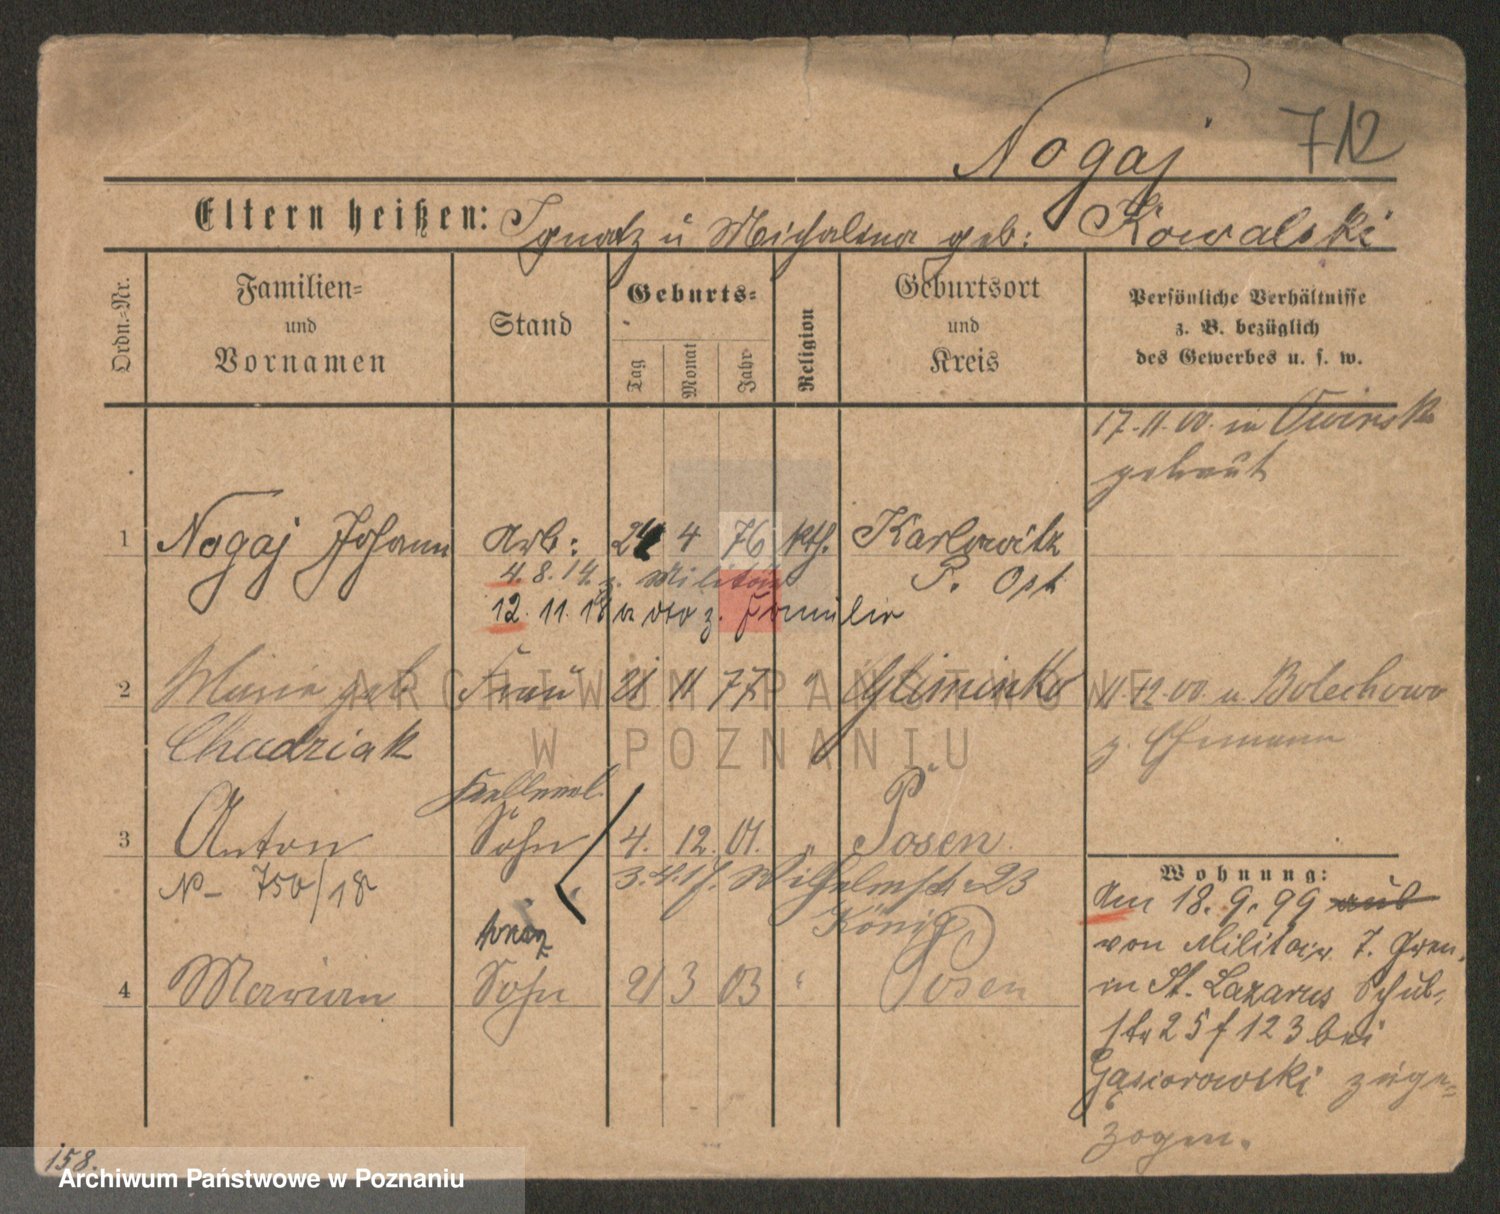 Nogaj 712
Eltern heißen: Ignatz u Michalina geb: Kowalski
Ordn.-Nr.
Familien-
und
Vornamen
Stand
Geburts-
Tag
Monat
Jahr
Religion
Geburtsort
und
Kreis
Persönliche Verhältnisse
z. B. bezüglich
des Gewerbes u. s. w.
17.11.00. in Owinsk
getraut
1 Nogaj Johann Arb: 24 4 76 kth. Karlowitz
4.8.14. z. Militär P. Ost
12.11.18 z. Familie
2 Maria geb Frau 21 11 77 " Gliminko 11.12.00 v. Bolechowo
Chudziak z. Ehemann
3 Anton Sohn 4. 12. 01. " Posen
N- 750/18 3.4.17. Wilhelmsth 23
König
4 Marian Sohn 21 3 03 " Posen
Wohnung:
Am 18.9.99 aus
von Militair 7. Gren.
in St. Lazarus Schul-
str 25 f 123 bei
Gąsiorowski zuge-
zogen.
158.
ARCHIWUM PAŃSTWOWE
W POZNANIU
Archiwum Państwowe w Poznaniu